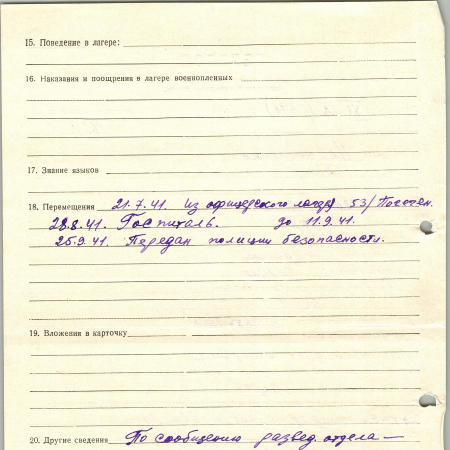 15. Поведение в лагере:
16. Наказания и поощрения в лагере военнопленных
17. Знание языков
18. Перемещения 21.7.41. Из офицерского лагеря 53/Погеген.
28.8.41. Госпиталь. до 11.9.41.
25.9.41. Передан полиции безопасности.
19. Вложения в карточку
20. Другие сведения По сообщению развед. отдела —